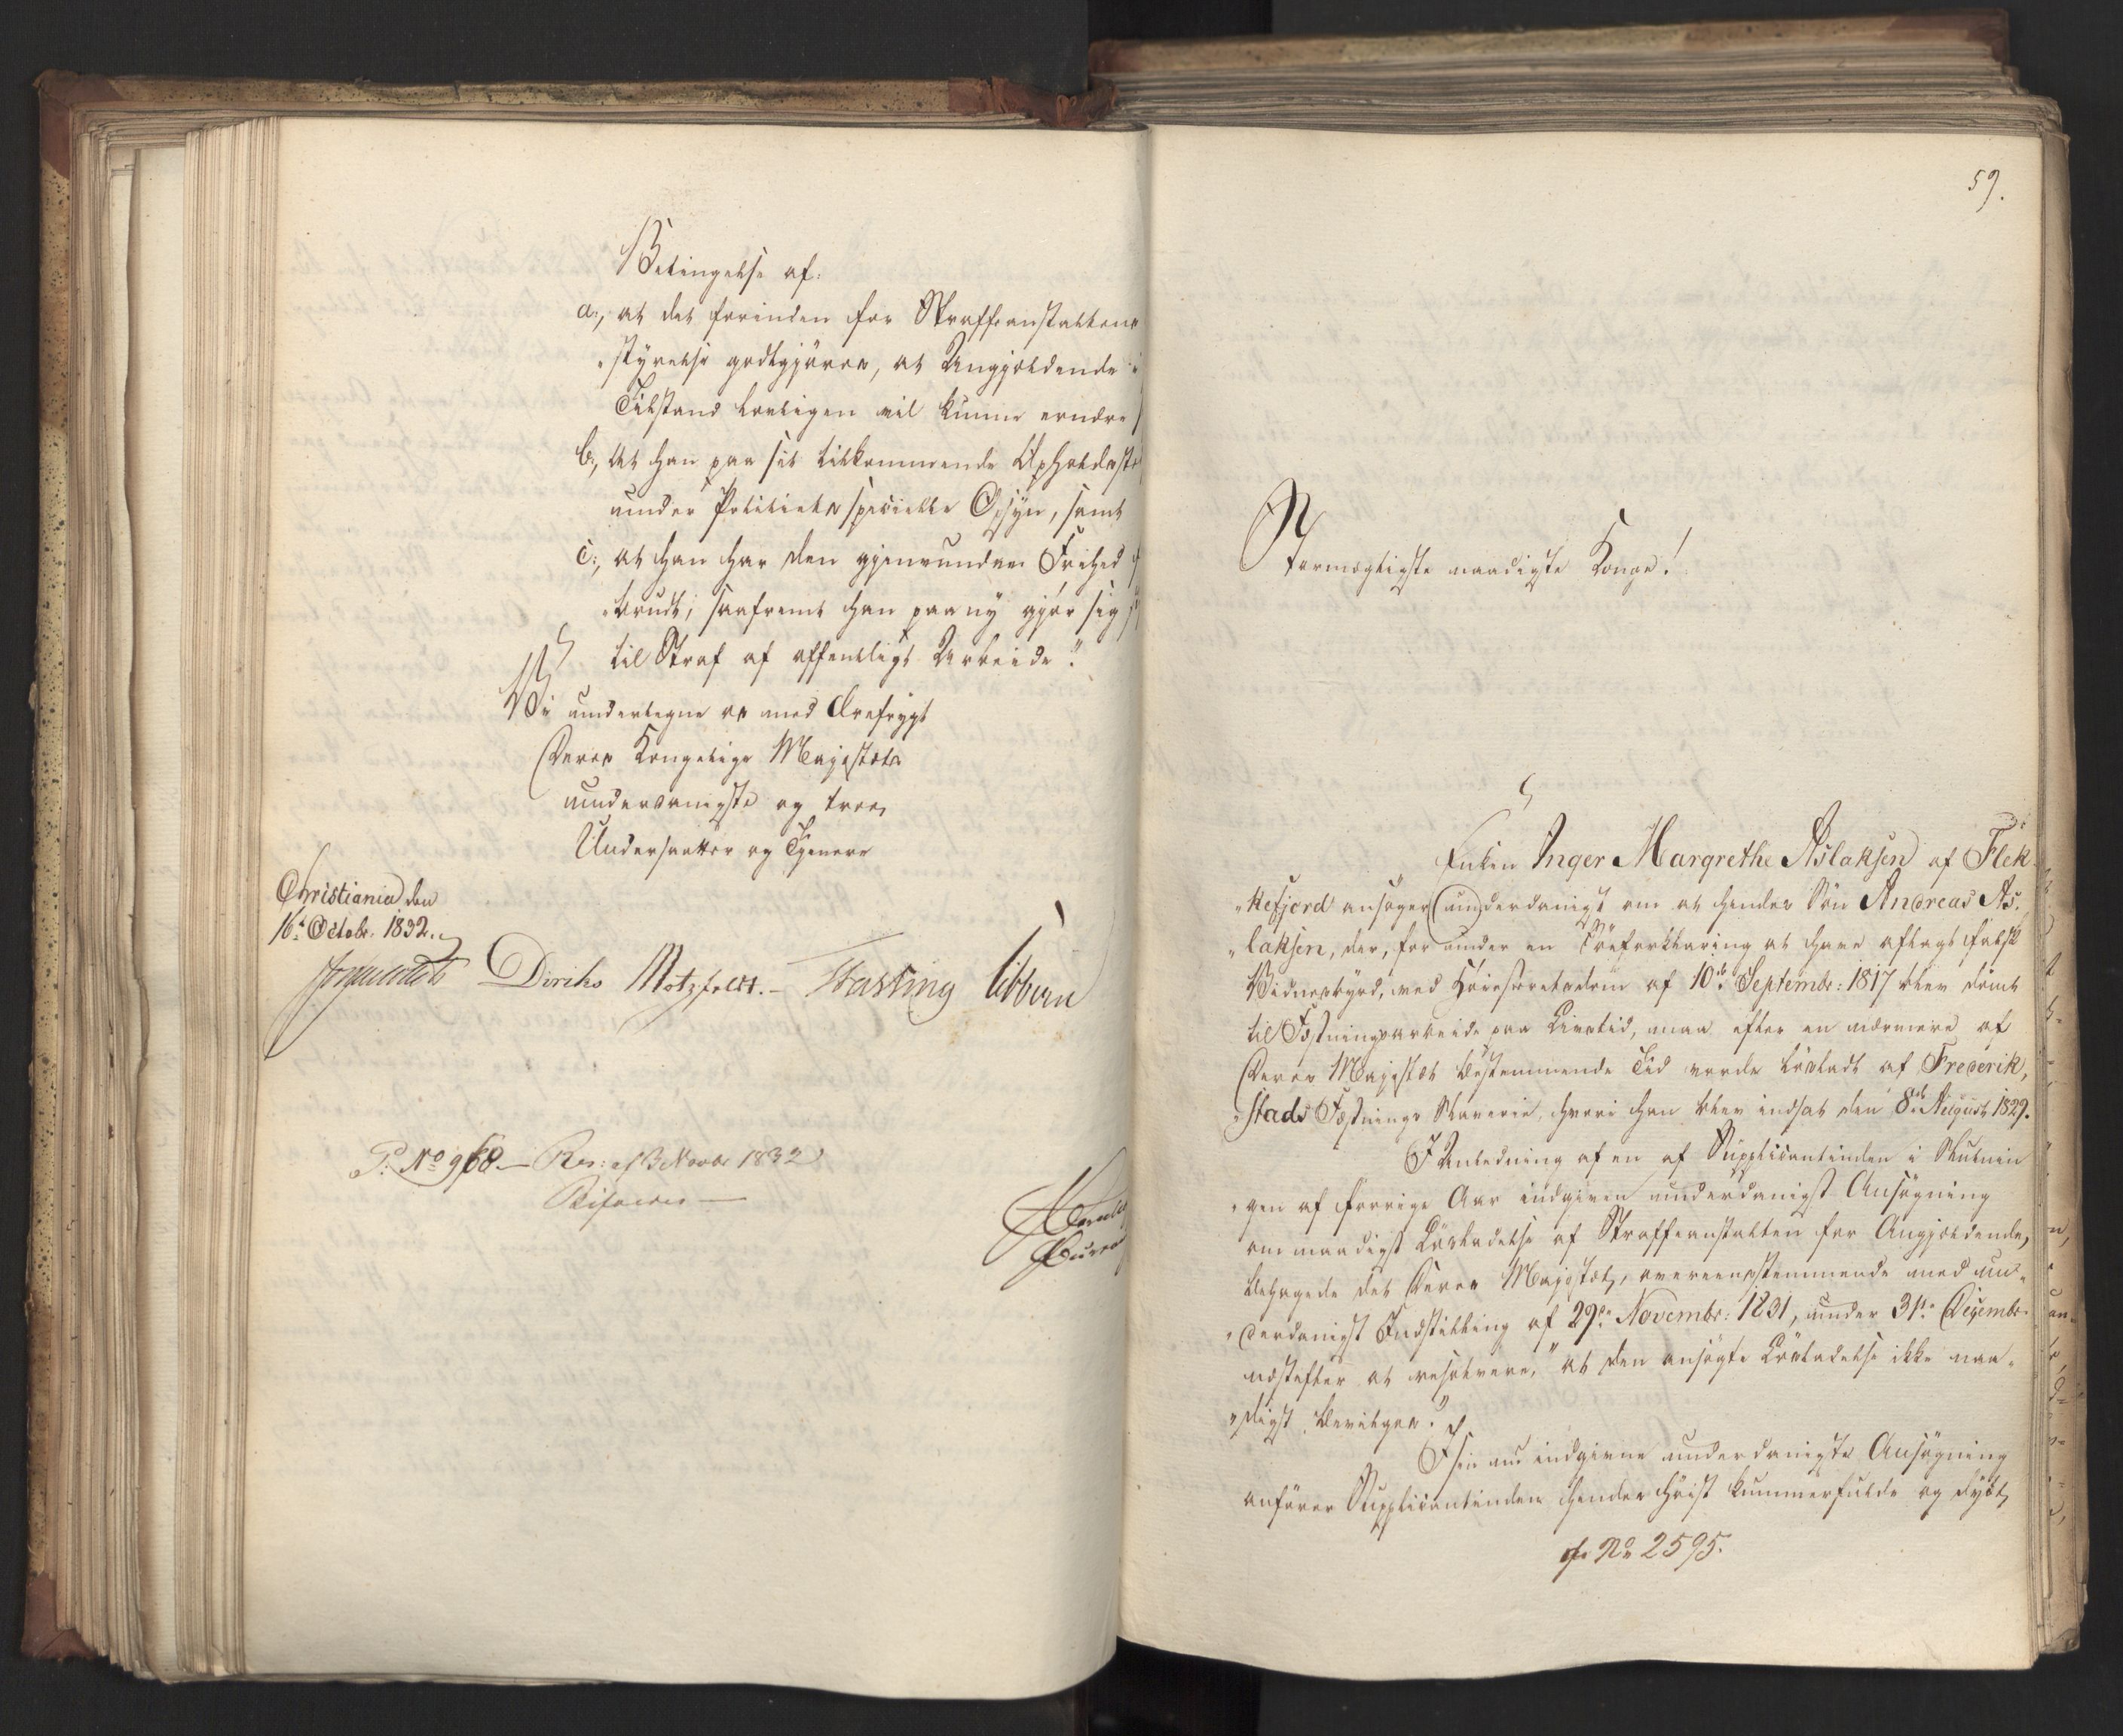 Betingelse af:
a:, at det forinden for Straffeanstaltens
"styrelse godtgjøres, at Angjeldende i
Tilstand lovligen vil kunne ernære
b:, At han paa sit tilkommende Opholdsste
under Politiets specielle Opsyn, samt
c:, at han har den gjenvundne Frihed
"brudt, saafremt han paa ny gjør sig
til Straf af offentligt Arbeide."
Vi undertegne os med Ærefrygt
Deres Kongelige Majestæts
underdanigste og troe
Undersaatter og Tjenere
Christiania den
16de Octobr. 1832.
Diriks Motzfeldt.- Fasting Vibe
P: No 968.- Res: af 3 Novbr 1832
Bifaldes
59.
Stormægtigste naadigste Konge!
Enken Inger Margrethe Aslaksen af Flek-
"kefjord ansøger underdanigst om at hendes Søn Andreas As-
"laksen, der, for under en Troeforklaring at have aflagt falsk
Vidnesbyrd, ved Høiesteretsdom af 10de Septembr: 1817 blev dømt
til Fæstningsarbeide paa Livstid, maa efter en nærmere af
Deres Majestæt bestemmende Tid vorde løsladt af Frederik-
"stads Fæstnings Slaverie, hvori han blev indsat den 8de August 1829.
I Anledning af en af Supplicantinden i Slutnin-
"gen af forrige Aar indgiven underdanigst Ansøgning
om naadigst Løsladelse af Straffeanstalten for Angjeldende,
behagede det Deres Majestæt, overeensstemmende med un-
"derdanigst Indstilling af 29de Novembr: 1831, under 31te Decembr.
næstefter at resolvere, "at den ansøgte Løsladelse ikke naa-
"digst bevilges."
I sin nu indgivne underdanigste Ansøgning
anfører Supplicantinden hendes høist kummerfulde og dybt
No 2595.